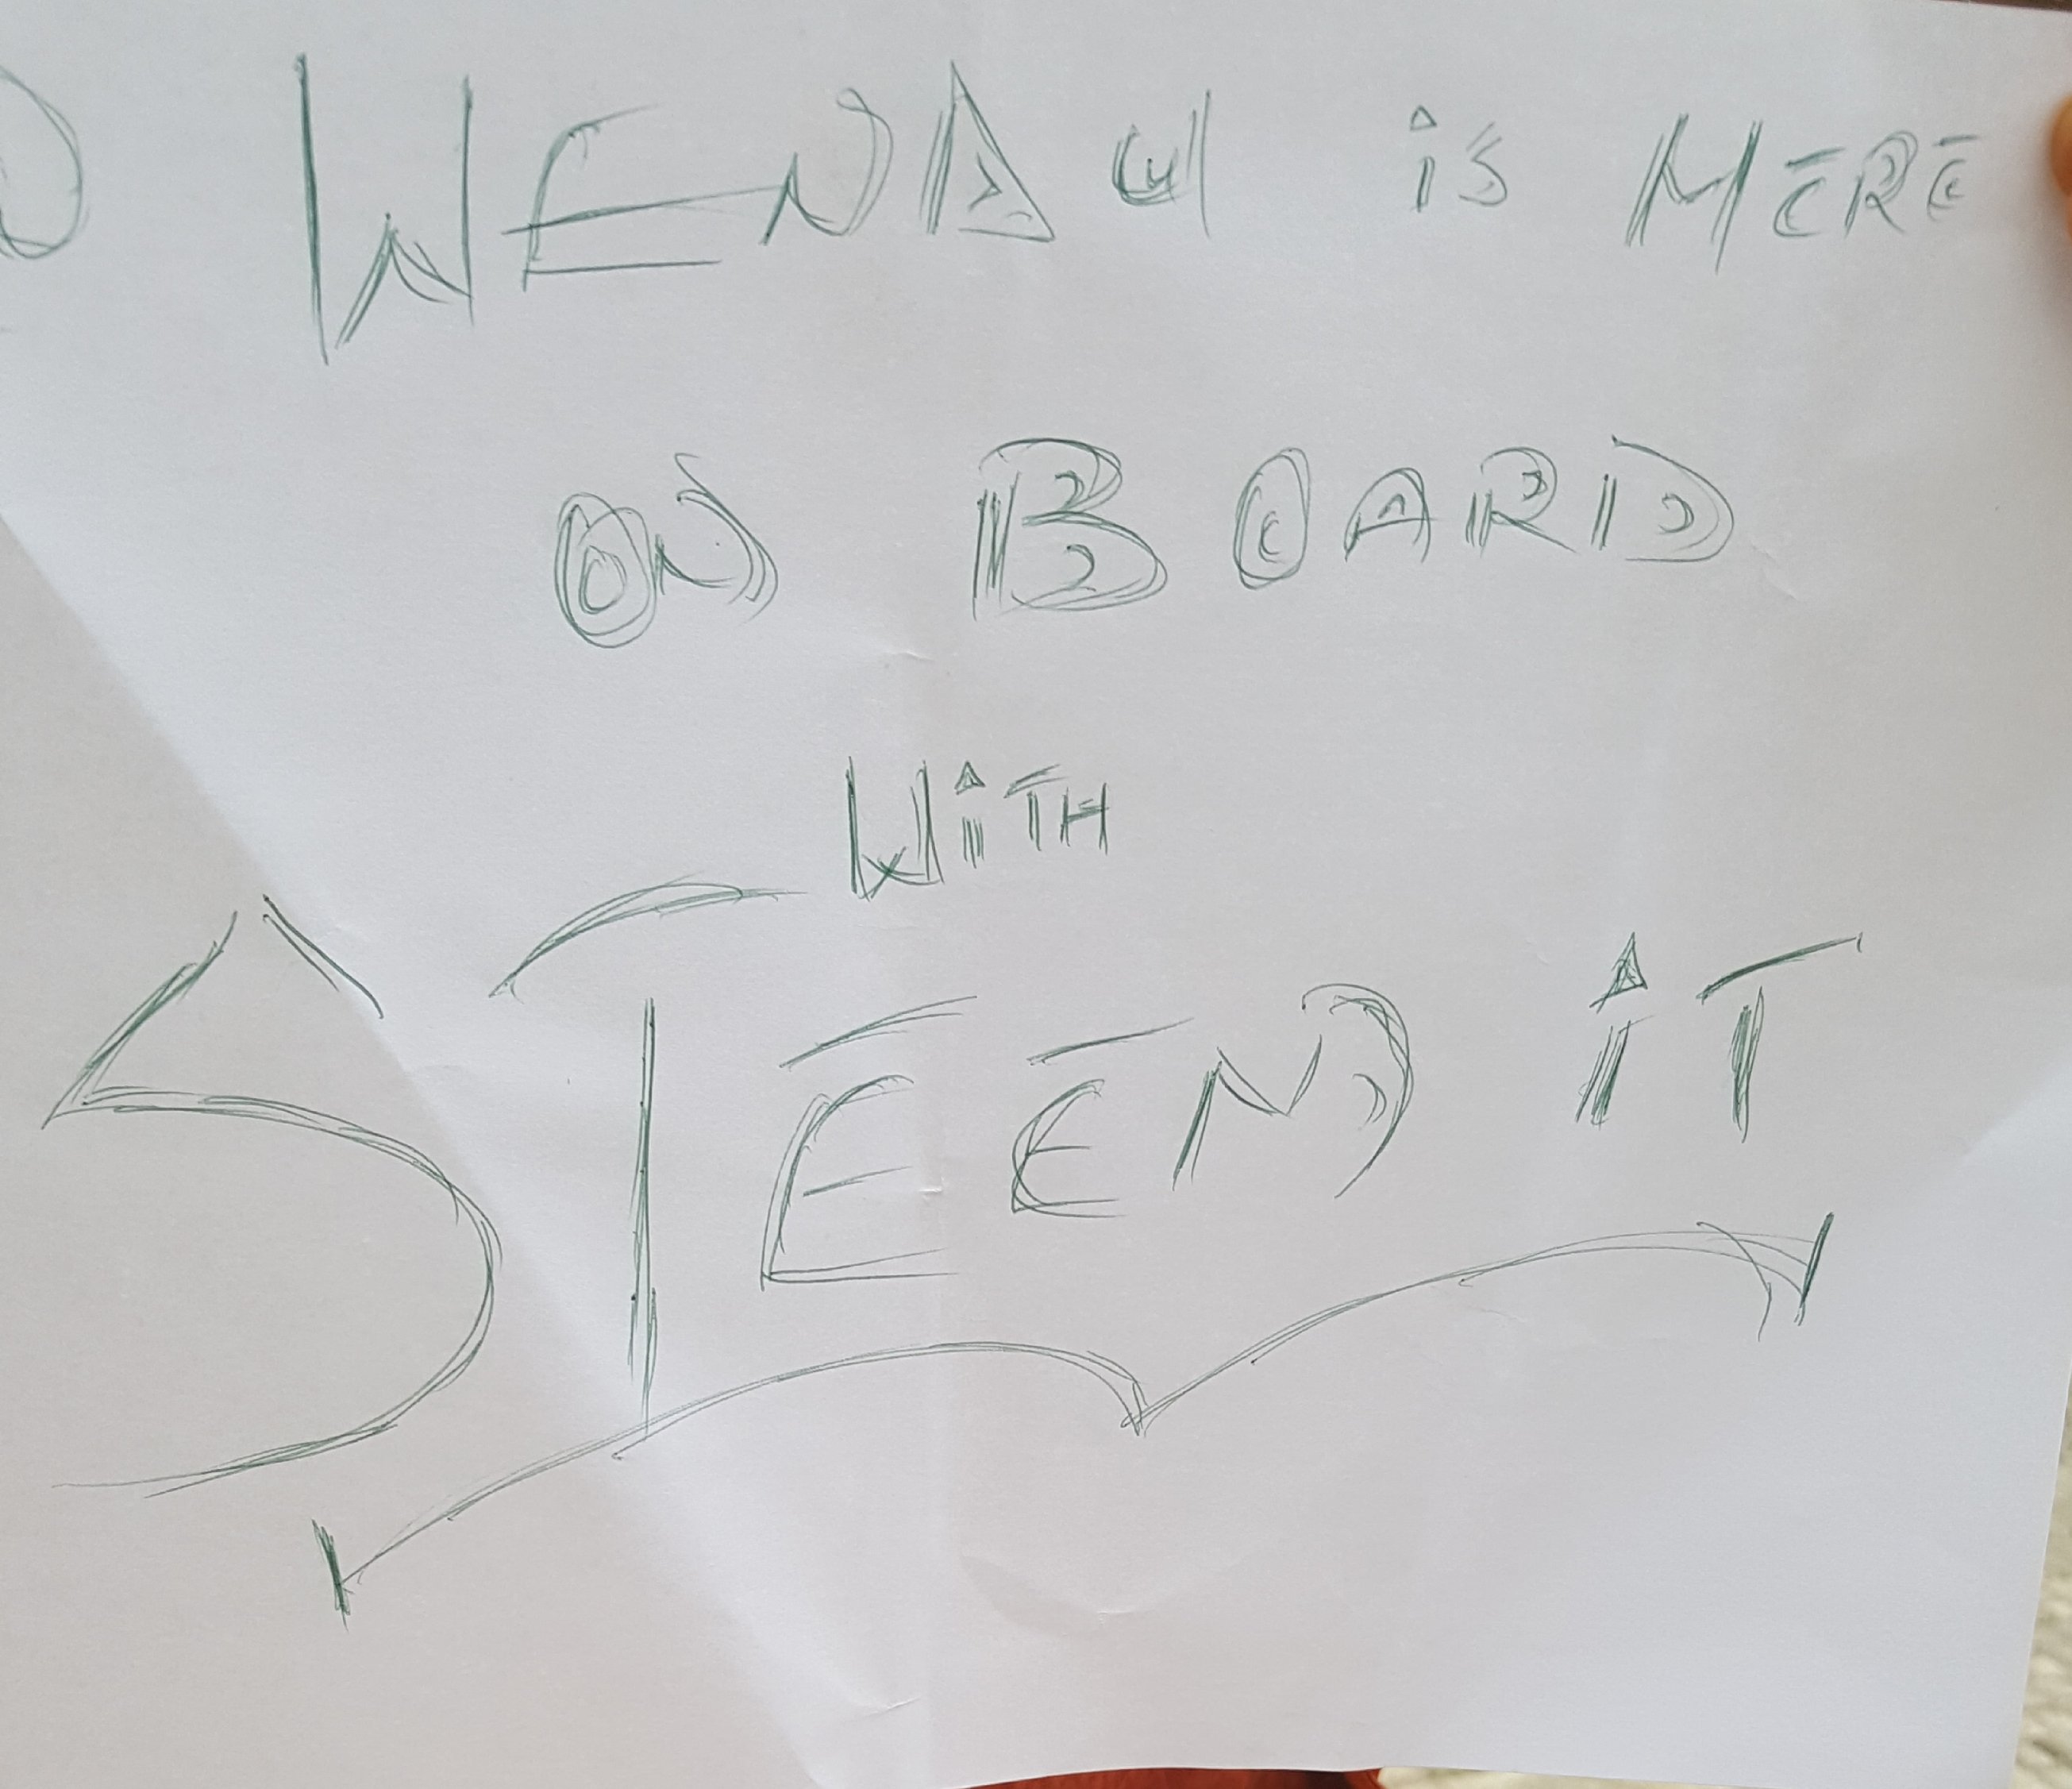 WENDY iS HERE
ON BOARD
WiTH
STEEM iT